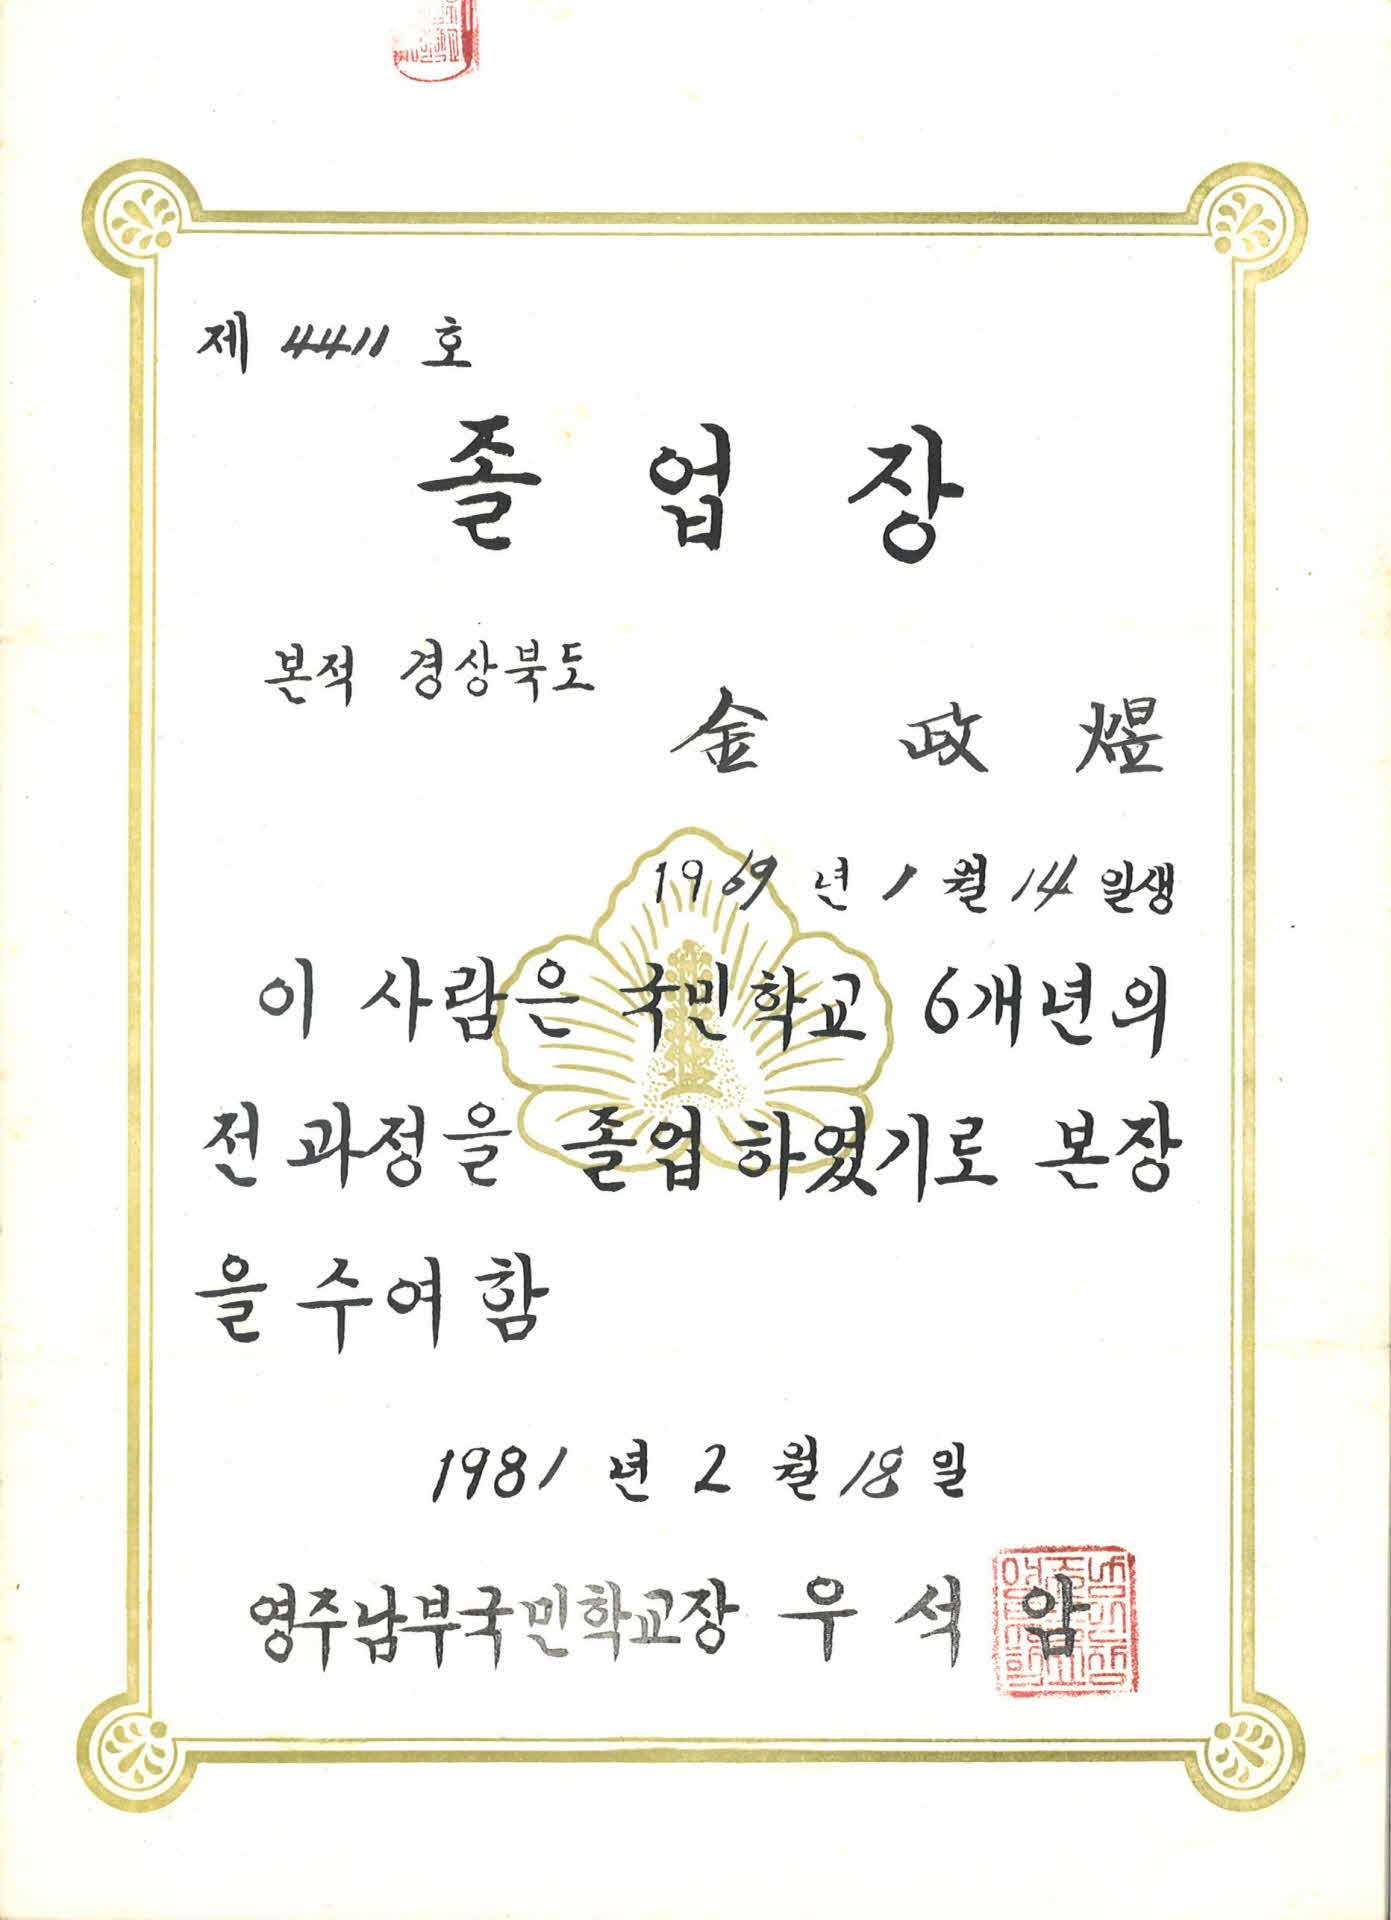 제 4411 호
졸 업 장
본적 경상북도
金 政 煜
1969 년 1 월 14 일생
이 사람은 국민학교 6개년의
전 과정을 졸업 하였기로 본장
을 수여 함
1981 년 2 월 18 일
영주남부국민학교장 우 석 암